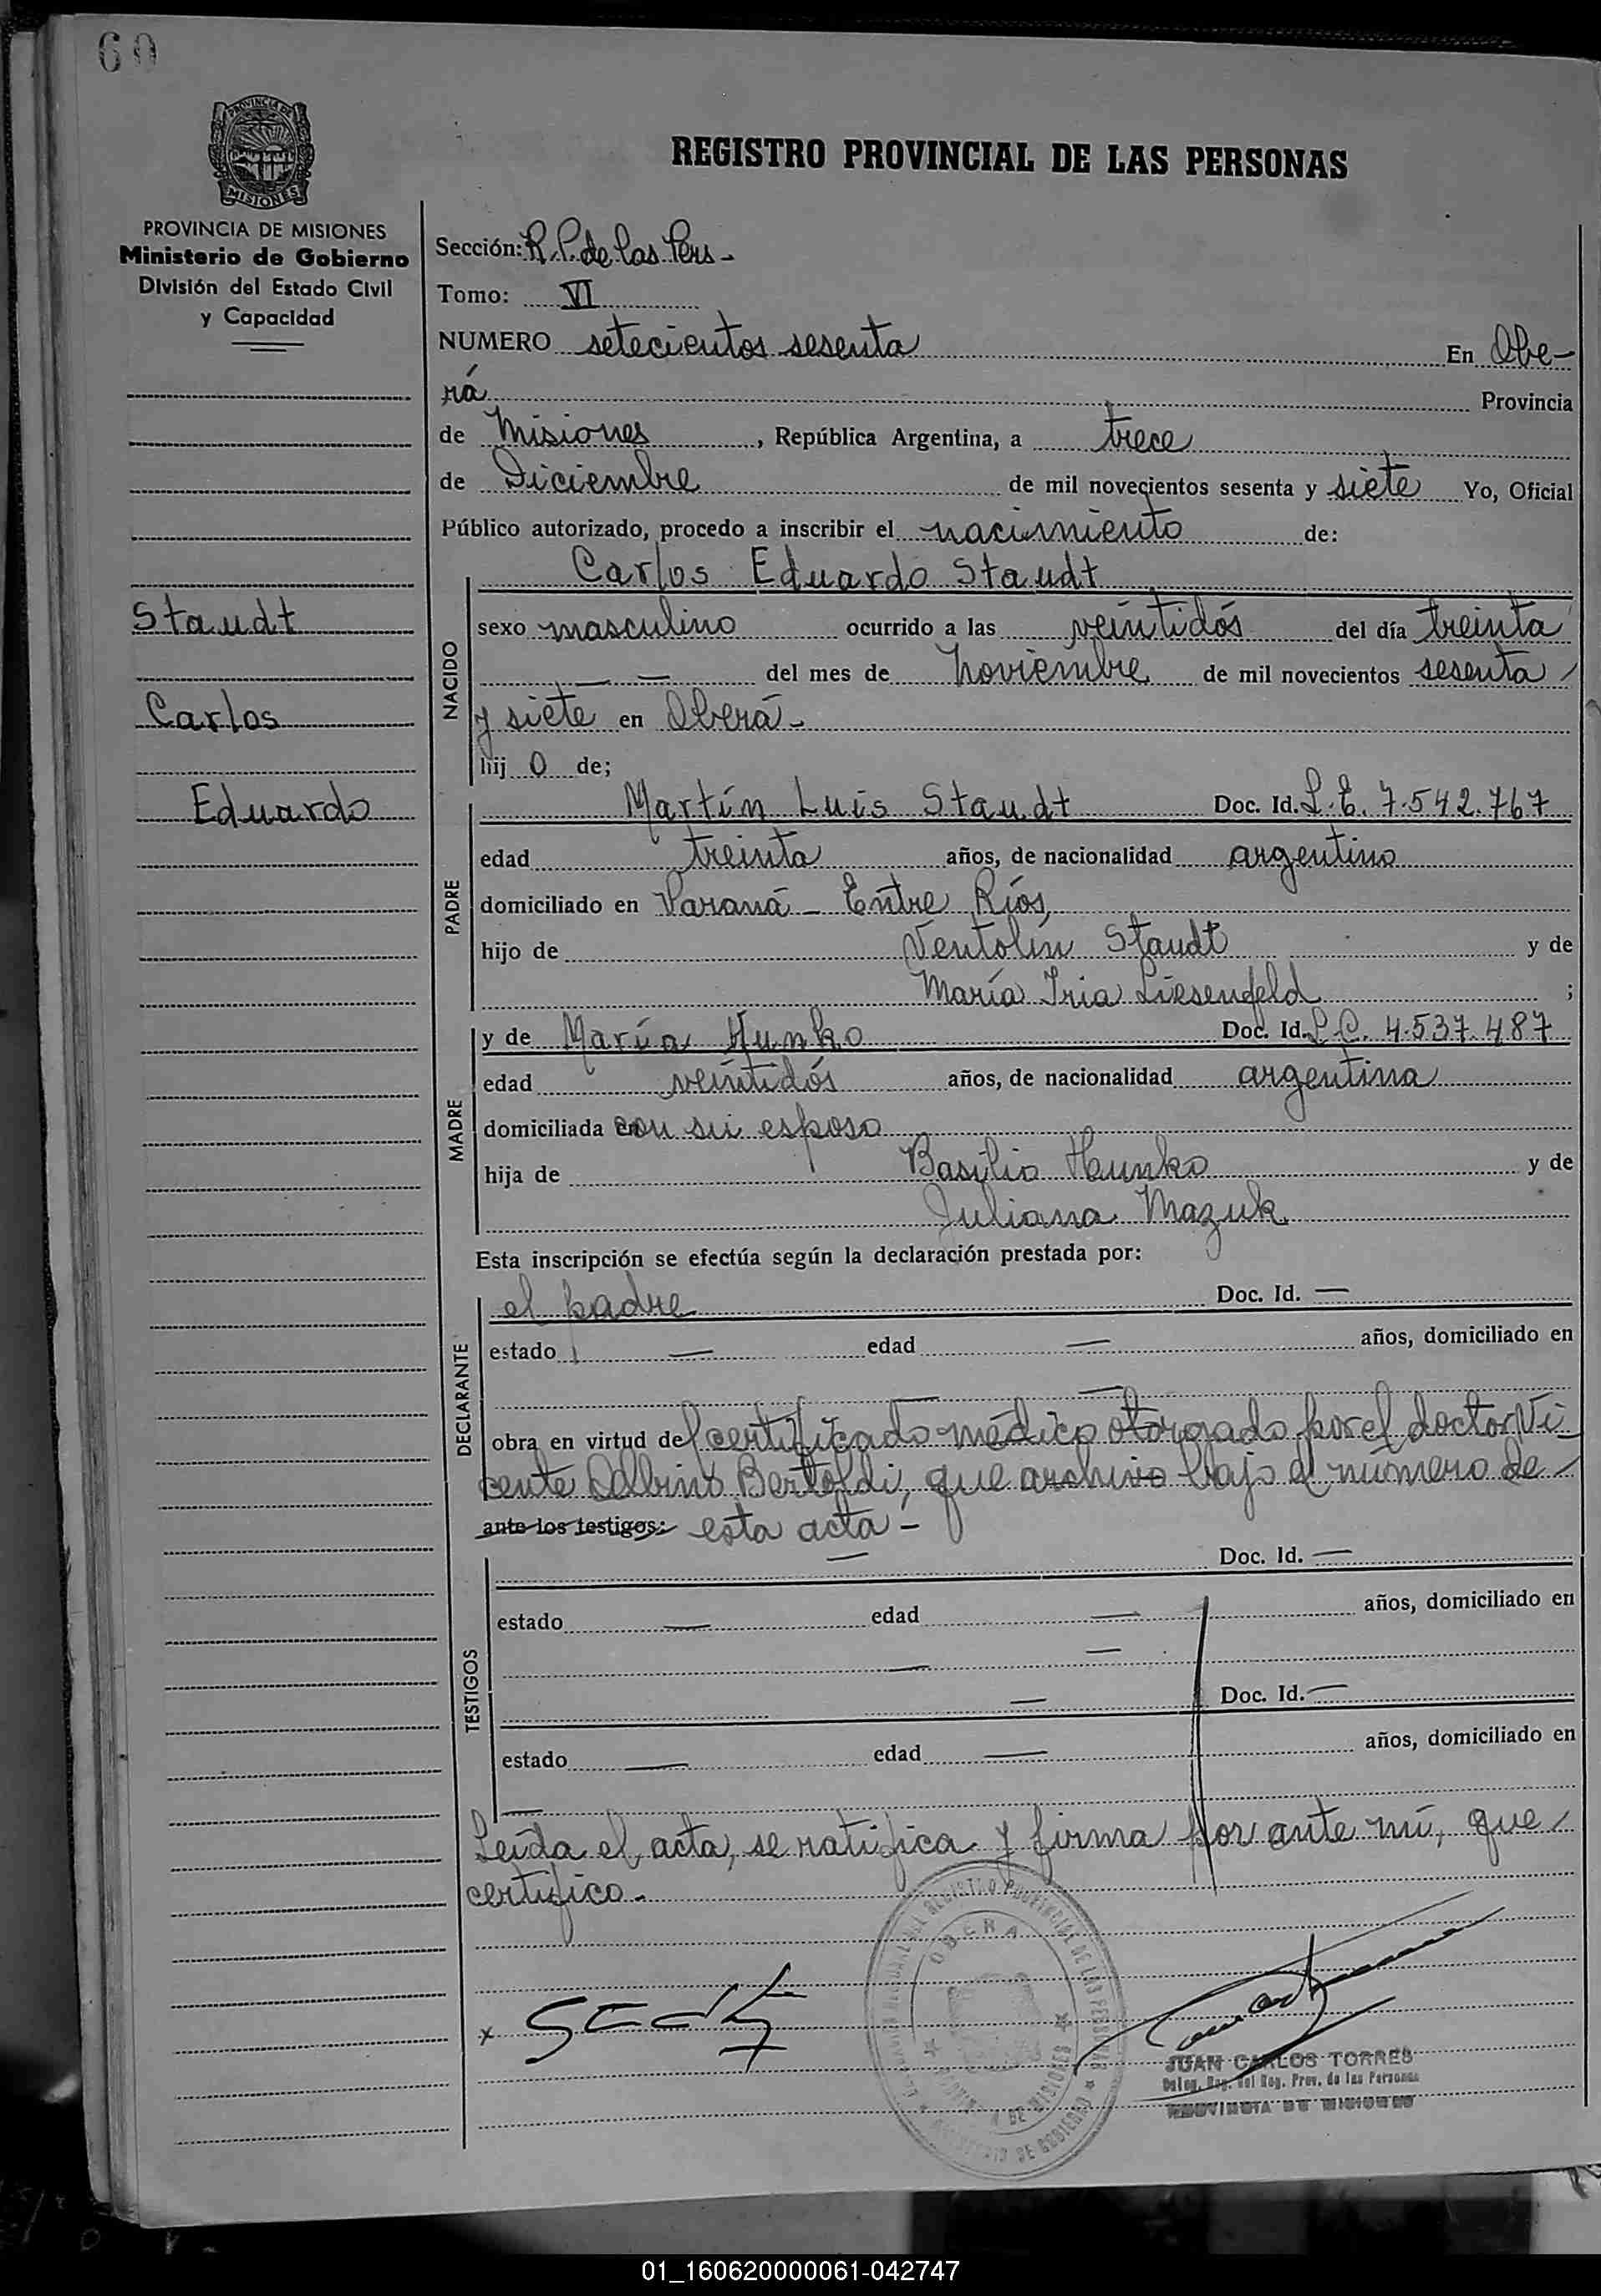 60
PROVINCIA DE
MISIONES
PROVINCIA DE MISIONES
Ministerio de Gobierno
División del Estado Civil
y Capacidad
Staudt
Carlos
Eduardo
REGISTRO PROVINCIAL DE LAS PERSONAS
Sección: R.P. de las Pers -
Tomo: VI
NUMERO setecientos sesenta En Obe-
rá Provincia
de Misiones, República Argentina, a trece
de Diciembre de mil novecientos sesenta y siete Yo, Oficial
Público autorizado, procedo a inscribir el nacimiento de:
Carlos Eduardo Staudt
NACIDO
sexo masculino ocurrido a las veintidós del día treinta
— — del mes de noviembre de mil novecientos sesenta
y siete en Oberá -
hij o de;
PADRE
Martín Luis Staudt Doc. Id. L.E. 7.542.767
edad treinta años, de nacionalidad argentino
domiciliado en Paraná - Entre Ríos
hijo de Ventolín Staudt y de
María Iria Liesenfeld ;
MADRE
y de María Hunko Doc. Id. L.C. 4.537.487
edad veintidós años, de nacionalidad argentina
domiciliada en con su esposo
hija de Basilio Hunko y de
Juliana Mazuk
Esta inscripción se efectúa según la declaración prestada por:
DECLARANTE
el padre Doc. Id. —
estado — edad — años, domiciliado en
— —
obra en virtud del certificado médico otorgado por el doctor Vi-
cente Albino Bertoldi, que archivo bajo el número de
ante los testigos: esta acta -
TESTIGOS
— Doc. Id. —
estado — edad — años, domiciliado en
— —
— Doc. Id. —
estado — edad — años, domiciliado en
—
Leída el acta, se ratifica y firma por ante mí, que
certifico.
OBERA
x
JUAN CARLOS TORRES
Deleg. Reg. del Reg. Prov. de las Personas
PROVINCIA DE MISIONES
01_160620000061-042747